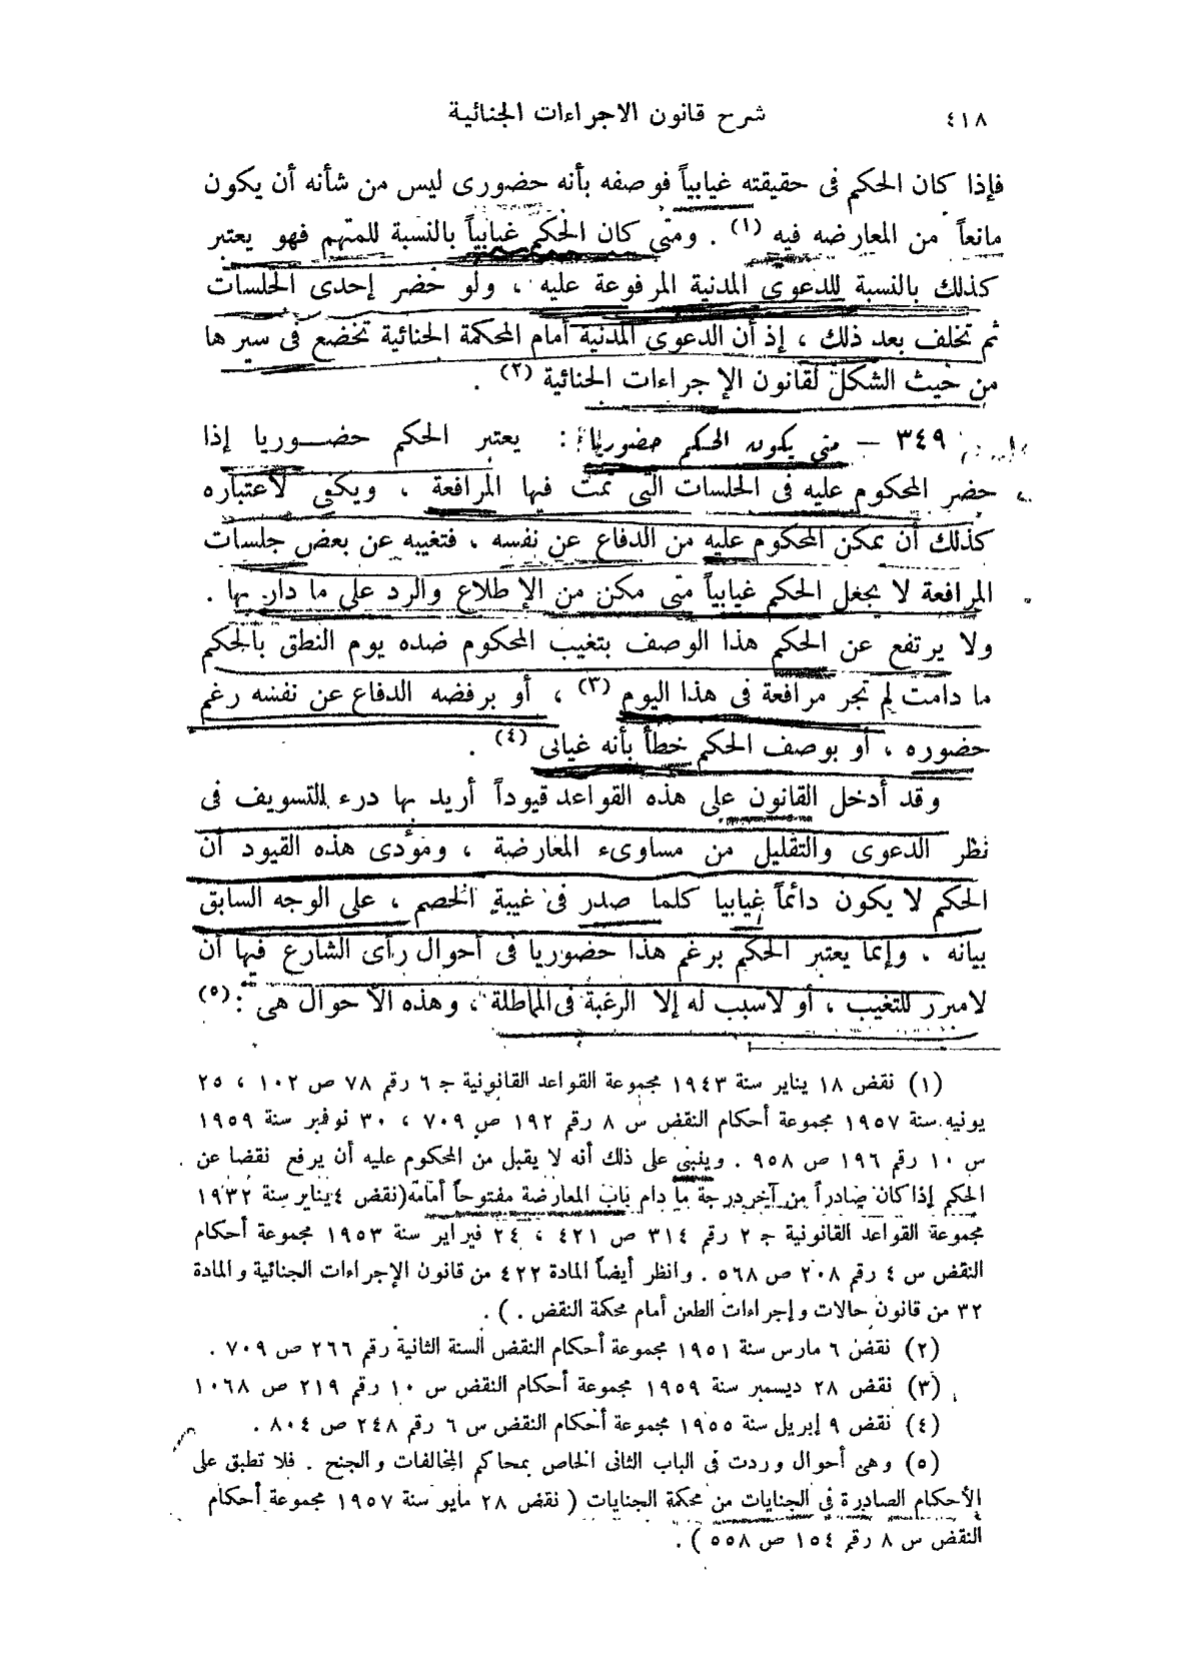 ٤١٨
شرح قانون الاجراءات الجنائية
فإذا كان الحكم فى حقيقته غيابياً فوصفه بأنه حضورى ليس من شأنه أن يكون
مانعاً من المعارضه فيه (١) . ومتى كان الحكم غيابياً بالنسبة للمتهم فهو يعتبر
كذلك بالنسبة للدعوى المدنية المرفوعة عليه ، ولو حضر إحدى الجلسات
ثم تخلف بعد ذلك ، إذ أن الدعوى المدنية أمام المحكمة الجنائية تخضع فى سيرها
من حيث الشكل لقانون الإجراءات الجنائية (٢) .
٣٤٩ – متى يكون الحكم حضوريا : يعتبر الحكم حضوريا إذا
حضر المحكوم عليه فى الجلسات التى تمت فيها المرافعة ، ويكفى لاعتباره
كذلك أن يمكن المحكوم عليه من الدفاع عن نفسه ، فتغيبه عن بعض جلسات
المرافعة لا يجعل الحكم غيابياً متى مكن من الإطلاع والرد على ما دار بها .
ولا يرتفع عن الحكم هذا الوصف بتغيب المحكوم ضده يوم النطق بالحكم
ما دامت لم تجر مرافعة فى هذا اليوم (٣) ، أو برفضه الدفاع عن نفسه رغم
حضوره ، أو بوصف الحكم خطأ بأنه غيابى (٤) .
وقد أدخل القانون على هذه القواعد قيوداً أريد بها درء التسويف فى
نظر الدعوى والتقليل من مساوىء المعارضة ، ومؤدى هذه القيود أن
الحكم لا يكون دائماً غيابيا كلما صدر فى غيبة الخصم ، على الوجه السابق
بيانه ، وإنما يعتبر الحكم برغم هذا حضوريا فى أحوال رأى الشارع فيها أن
لامبرر للتغيب ، أو لاسبب له إلا الرغبة فى المماطلة ، وهذه الأحوال هى : (٥)
(١) نقض ١٨ يناير سنة ١٩٤٣ مجموعة القواعد القانونية ج ٦ رقم ٧٨ ص ١٠٢ ، ٢٥
يونيه سنة ١٩٥٧ مجموعة أحكام النقض س ٨ رقم ١٩٢ ص ٧٠٩ ، ٣٠ نوفبر سنة ١٩٥٩
س ١٠ رقم ١٩٦ ص ٩٥٨ . وينبنى على ذلك أنه لا يقبل من المحكوم عليه أن يرفع نقضا عن
الحكم إذا كان صادراً من آخر درجة ما دام باب المعارضة مفتوحاً أمامه (نقض ٤ يناير سنة ١٩٣٢
مجموعة القواعد القانونية ج ٢ رقم ٣١٤ ص ٤٢١ ، ٢٤ فبراير سنة ١٩٥٣ مجموعة أحكام
النقض س ٤ رقم ٢٠٨ ص ٥٦٨ . وانظر أيضاً المادة ٤٢٢ من قانون الإجراءات الجنائية والمادة
٣٢ من قانون حالات وإجراءات الطعن أمام محكمة النقض . ) .
(٢) نقض ٦ مارس سنة ١٩٥١ مجموعة أحكام النقض السنة الثانية رقم ٢٦٦ ص ٧٠٩ .
(٣) نقض ٢٨ ديسمبر سنة ١٩٥٩ مجموعة أحكام النقض س ١٠ رقم ٢١٩ ص ١٠٦٨
(٤) نقض ٩ إبريل سنة ١٩٥٥ مجموعة أحكام النقض س ٦ رقم ٢٤٨ ص ٨٠٤ .
(٥) وهى أحوال وردت فى الباب الثانى الخاص بمحاكم المخالفات والجنح . فلا تطبق على
الأحكام الصادرة فى الجنايات من محكمة الجنايات ( نقض ٢٨ مايو سنة ١٩٥٧ مجموعة أحكام
النقض س ٨ رقم ١٥٤ ص ٥٥٨ ) .